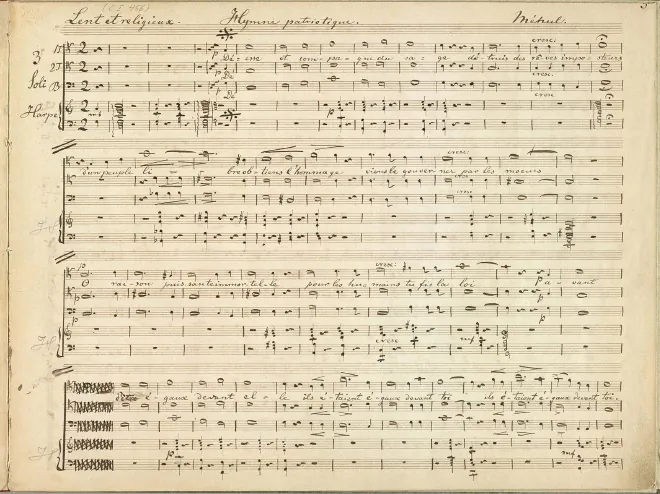 Lent et religieux. Hymne patriotique. Méhul.
3
3 1T
Soli 2T
B
Harpe mf
cresc.
Di-ne et com-pa-gne du sa-ge dé-truis des rêves imposteurs
cresc.
cresc.
cresc.
d'un peuple li-bre obtiens l'hommage viens le gouver-ner par les moeurs
cresc.
p cresc.
O rai-son puissante immor-tel-le pour les hu-mains tu fis la loi a-vant
p
cresc. mf
p
égaux devant el-le ils é-taient é-gaux devant toi ils é-taient é-gaux devant toi.
p mf